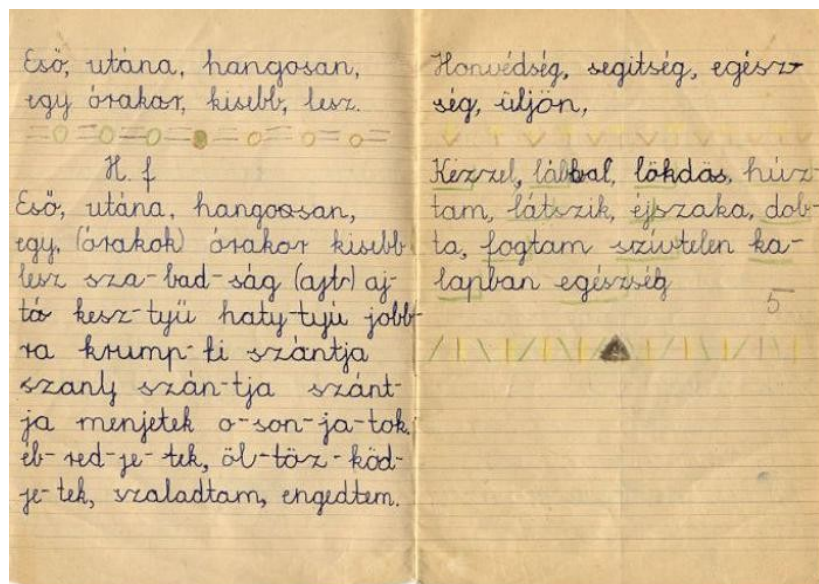 Eső, utána, hangosan,
egy órakor, kisebb, lesz.
H. f
Eső, utána, hangosan,
egy, (órakok) órakor kisebb
lesz sza-bad-ság (ajtr) aj-
tó kesz-tyű haty-tyú jobb-
ra krump-li szántja
szanlj szán-tja szánt-
ja menjetek o-son-ja-tok.
éb-red-je-tek, öl-töz-köd-
je-tek, szaladtam, engedtem.
Honvédség, segitség, egész-
ség, üljön,
Kézzel, lábbal, lökdös, húz-
tam, látszik, éjszaka, dob-
ta, fogtam szívtelen ka-
lapban egészség
5